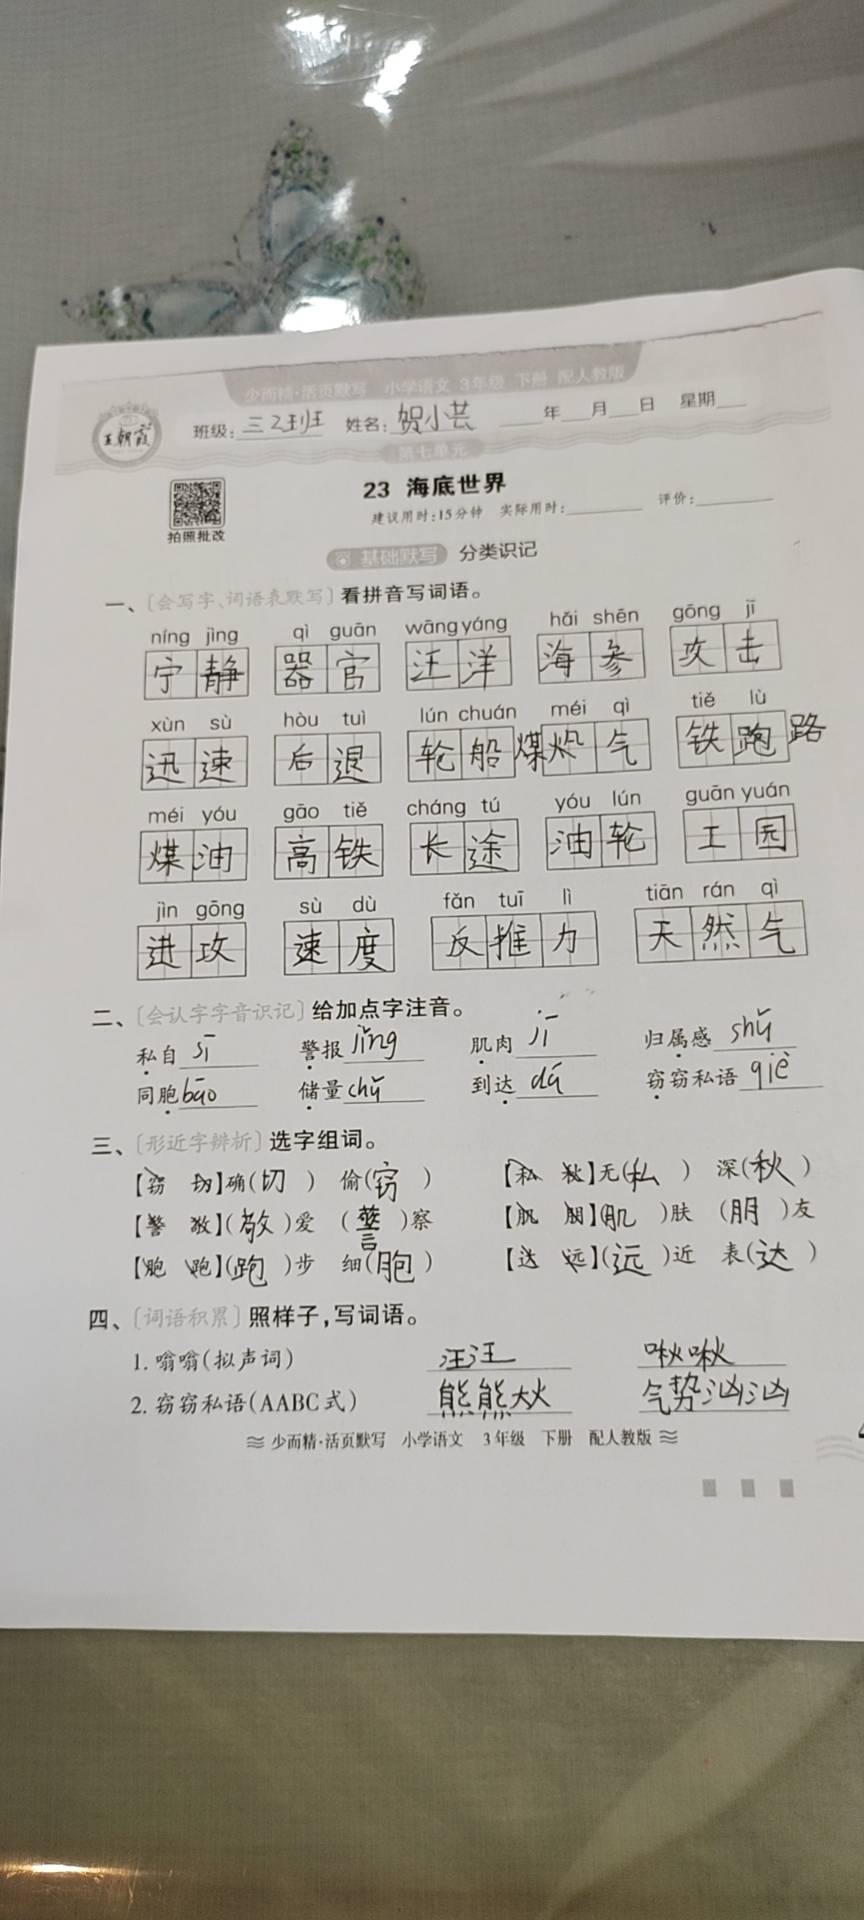 少而精·活页默写 小学语文 3年级 下册 配人教版
王朝霞 班级:三2班 姓名:贺小芸 ____年___月___日 星期___
第七单元
23 海底世界
拍照批改
建议用时:15分钟 实际用时:________ 评价:________
基础默写 分类识记
一、〔会写字、词语表默写〕看拼音写词语。
níng jìng qì guān wāng yáng hǎi shēn gōng jī
宁静 器官 汪洋 海参 攻击
xùn sù hòu tuì lún chuán méi qì tiě lù
迅速 后退 轮船 煤气 铁跑路
méi yóu gāo tiě cháng tú yóu lún guān yuán
煤油 高铁 长途 油轮 工园
jìn gōng sù dù fǎn tuī lì tiān rán qì
进攻 速度 反推力 天然气
二、〔会认字字音识记〕给加点字注音。
私自 sī 警报 jǐng 肌肉 jī 归属感 shǔ
同胞 bāo 储量 chǔ 到达 dá 窃窃私语 qiè
三、〔形近字辨析〕选字组词。
【窃 切】确(切) 偷(窃) 【私 秋】无(私) 深(秋)
【警 敬】(敬)爱 (警)察 【肌 朋】(肌)肤 (朋)友
【胞 跑】(跑)步 细(胞) 【达 远】(远)近 表(达)
四、〔词语积累〕照样子,写词语。
1. 嗡嗡(拟声词) 汪汪 啾啾
2. 窃窃私语(AABC式) 熊熊大火 气势汹汹
少而精·活页默写 小学语文 3年级 下册 配人教版